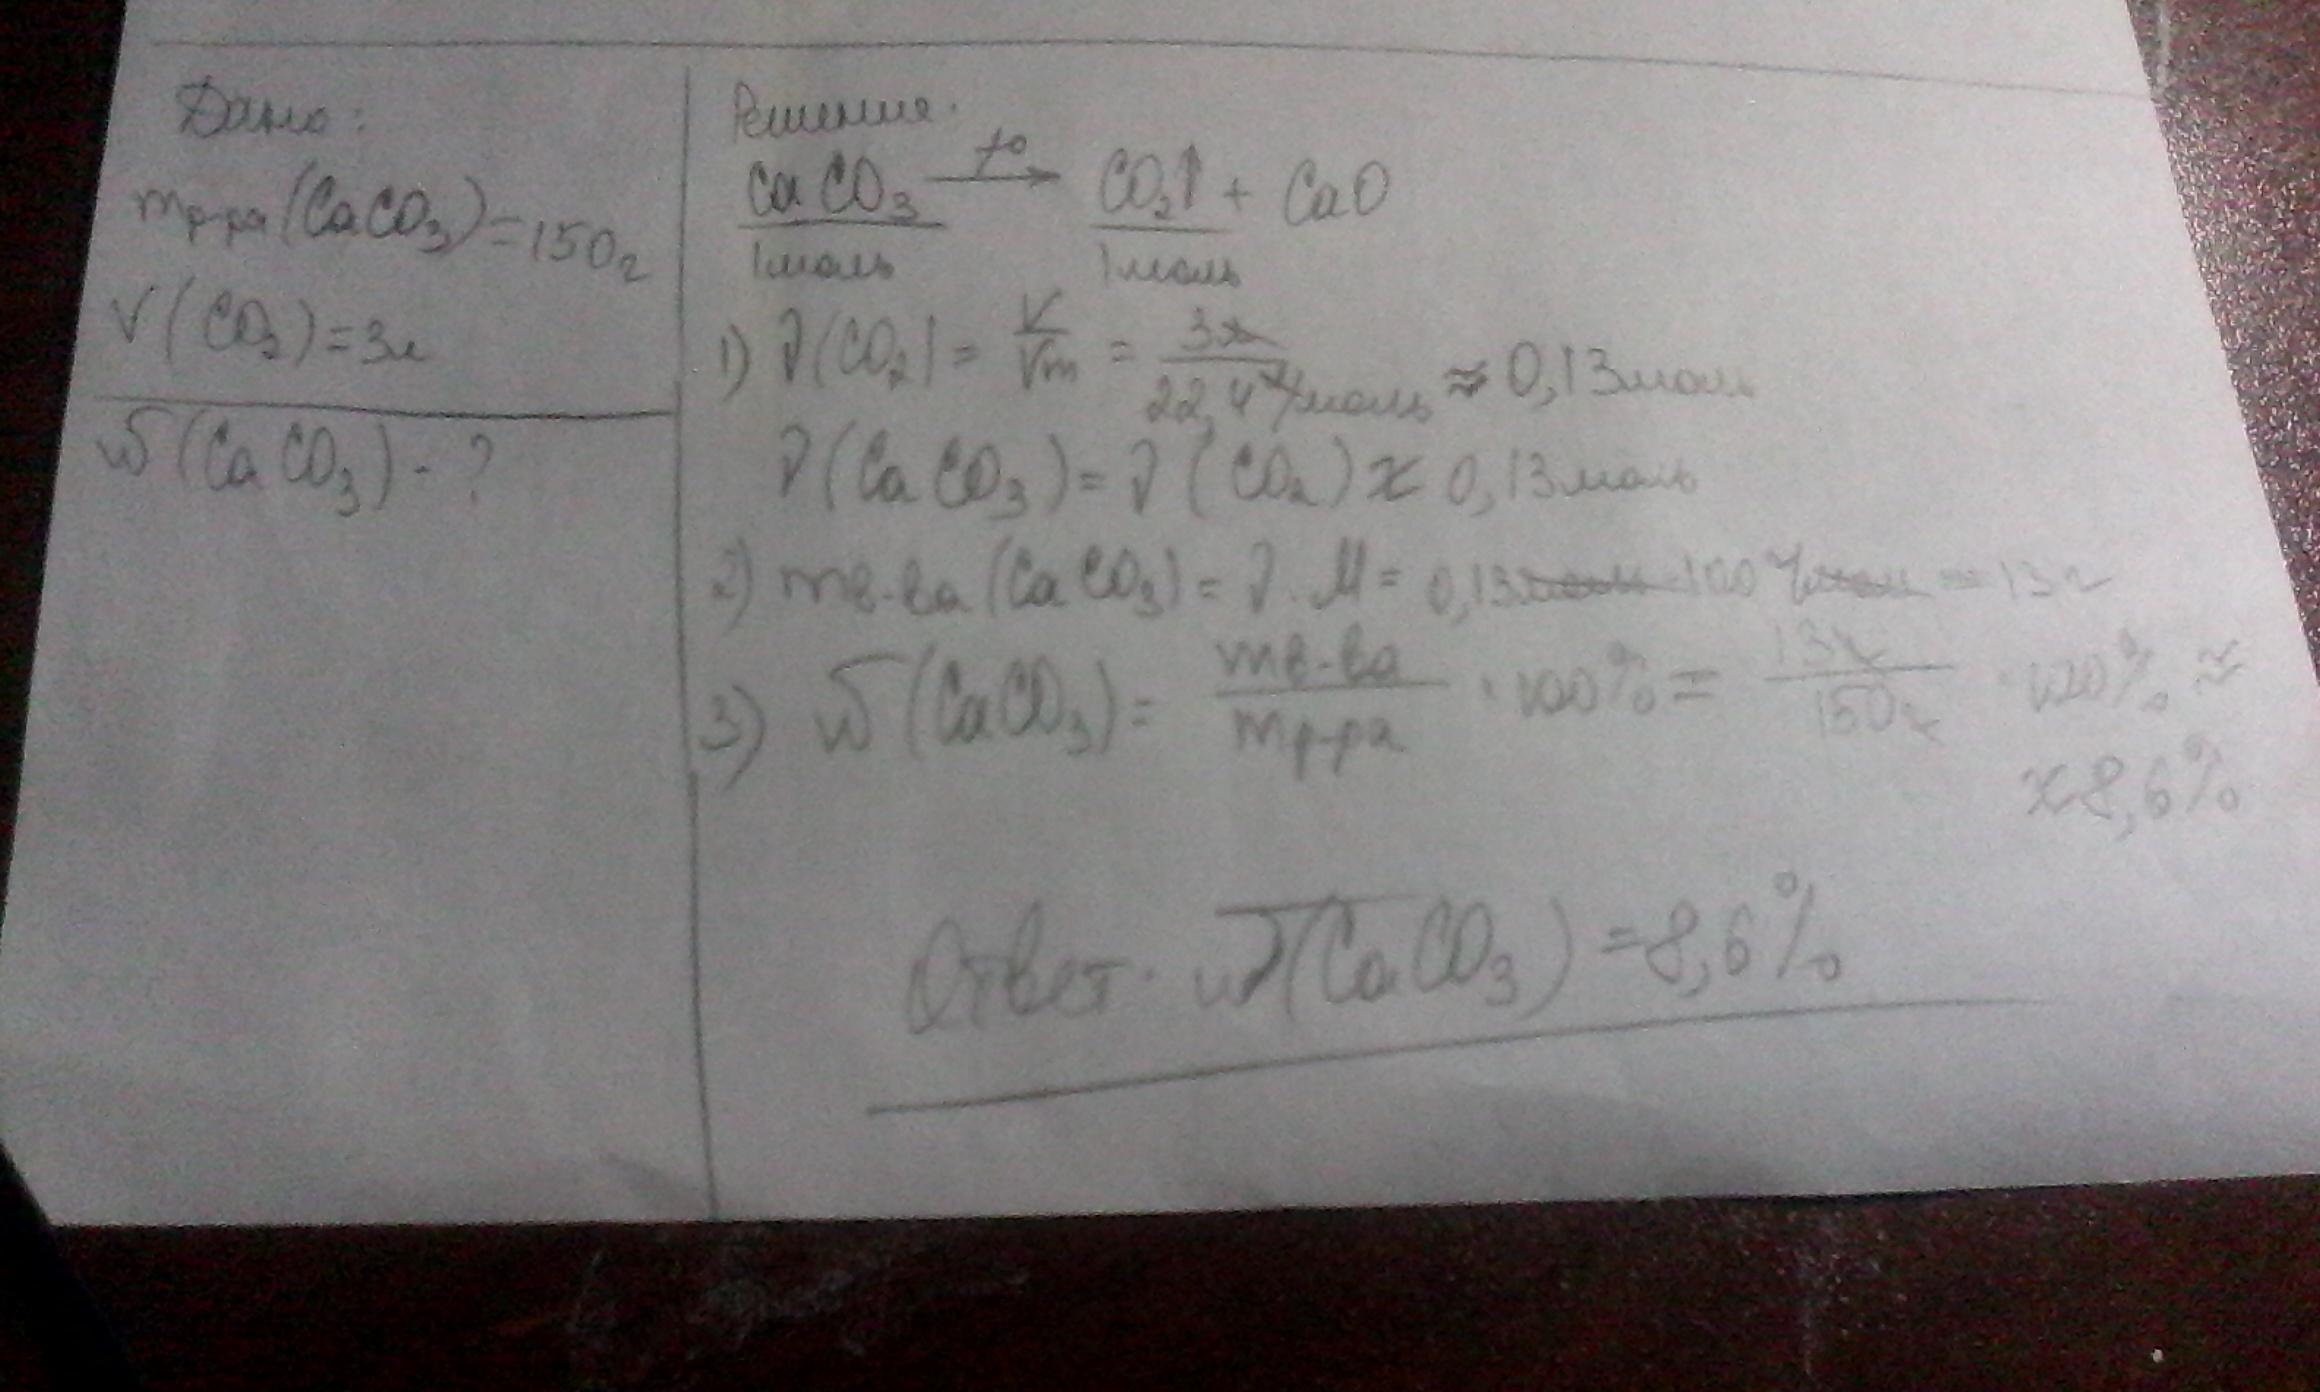 Дано:
mр-ра(CaCO3)=150г
V(CO2)=3л
ω(CaCO3)-?
Решение.
CaCO3 t°→ CO2↑ + CaO
1моль 1моль
1) ν(CO2)= V/Vm = 3л/22,4л/моль ≈ 0,13моль
ν(CaCO3)=ν(CO2)≈0,13моль
2) mв-ва(CaCO3)=ν·M=0,13моль·100г/моль=13г
3) ω(CaCO3)= mв-ва/mр-ра ·100%= 13г/150г ·100%≈
≈8,6%
Ответ· ω(CaCO3)=8,6%